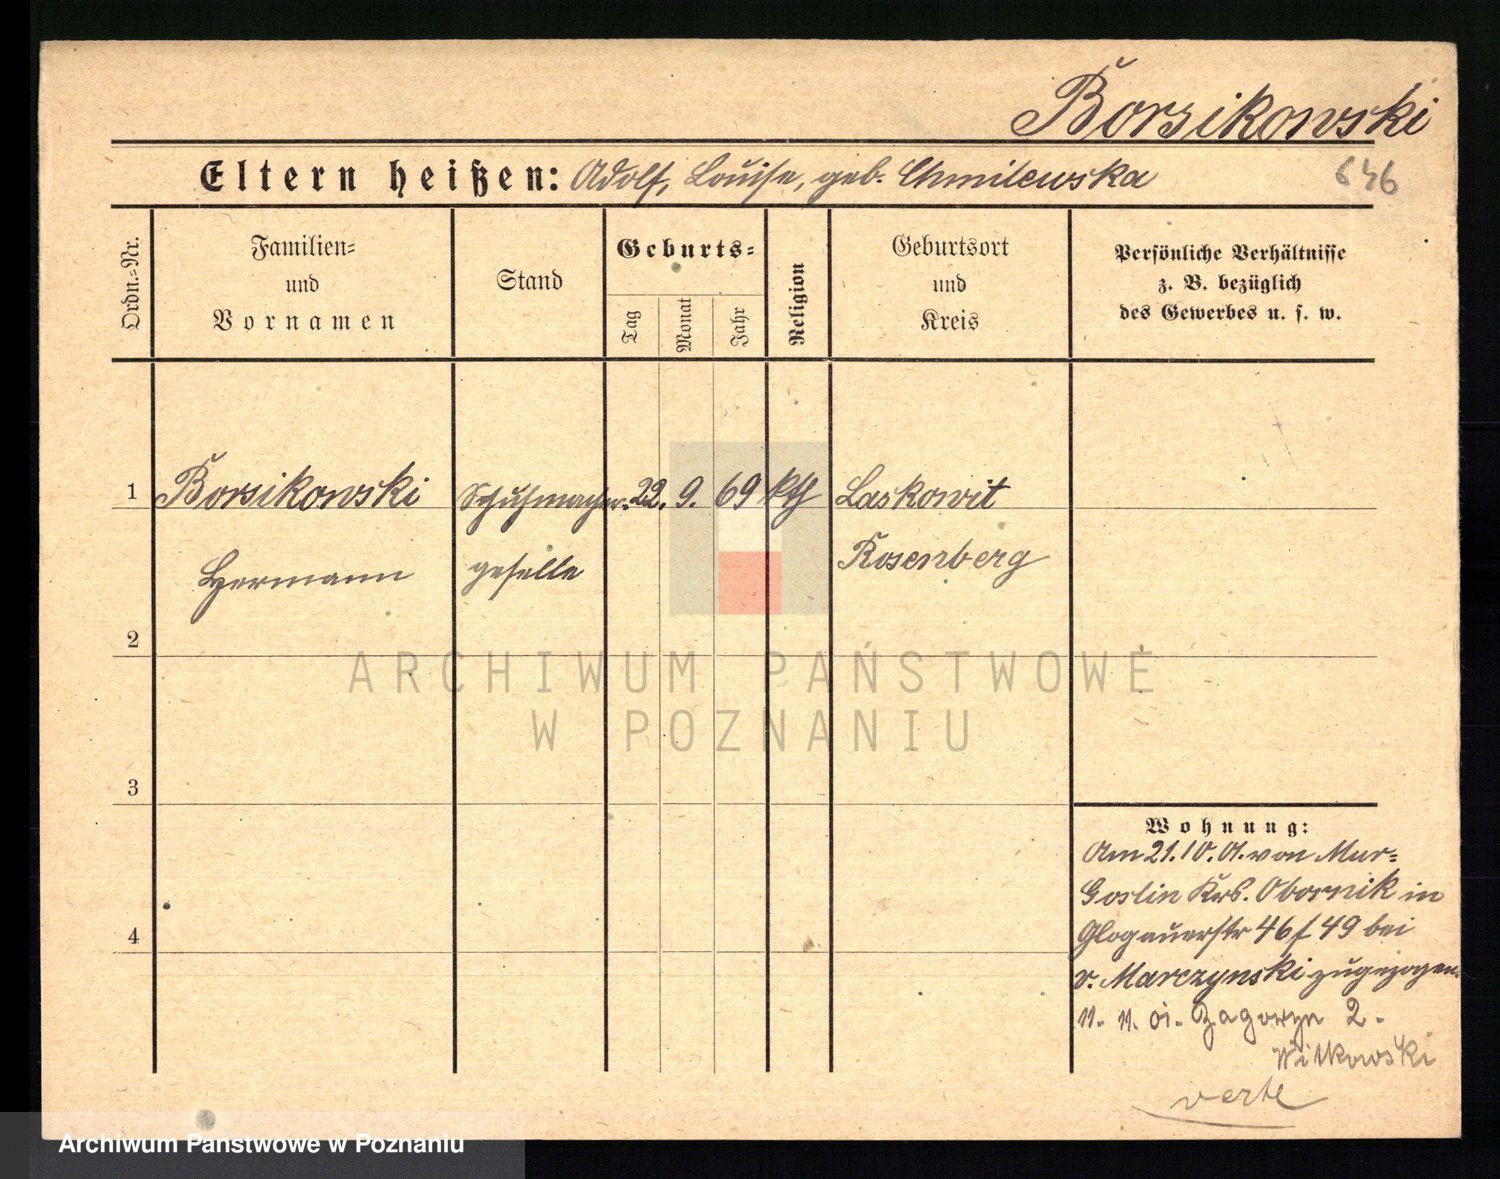 Borsikowski
Eltern heißen: Adolf, Louise, geb. Chmilewska
646
Ordn.-Nr.
Familien-
und
Vornamen
Stand
Geburts-
Tag
Monat
Jahr
Religion
Geburtsort
und
Kreis
Persönliche Verhältnisse
z. B. bezüglich
des Gewerbes u. s. w.
1 Borsikowski Schuhmacher- 22. 9. 69 kth Laskowit
Hermann geselle Rosenberg
2
3
4
Wohnung:
Am 21.10.01. von Mur-
Goslin Krs. Obornik in
Glogauerstr 46/49 bei
v. Marczynski zugezogen.
Zagorzyn 2.
Witkowski
verte
ARCHIWUM PAŃSTWOWE
W POZNANIU
Archiwum Państwowe w Poznaniu